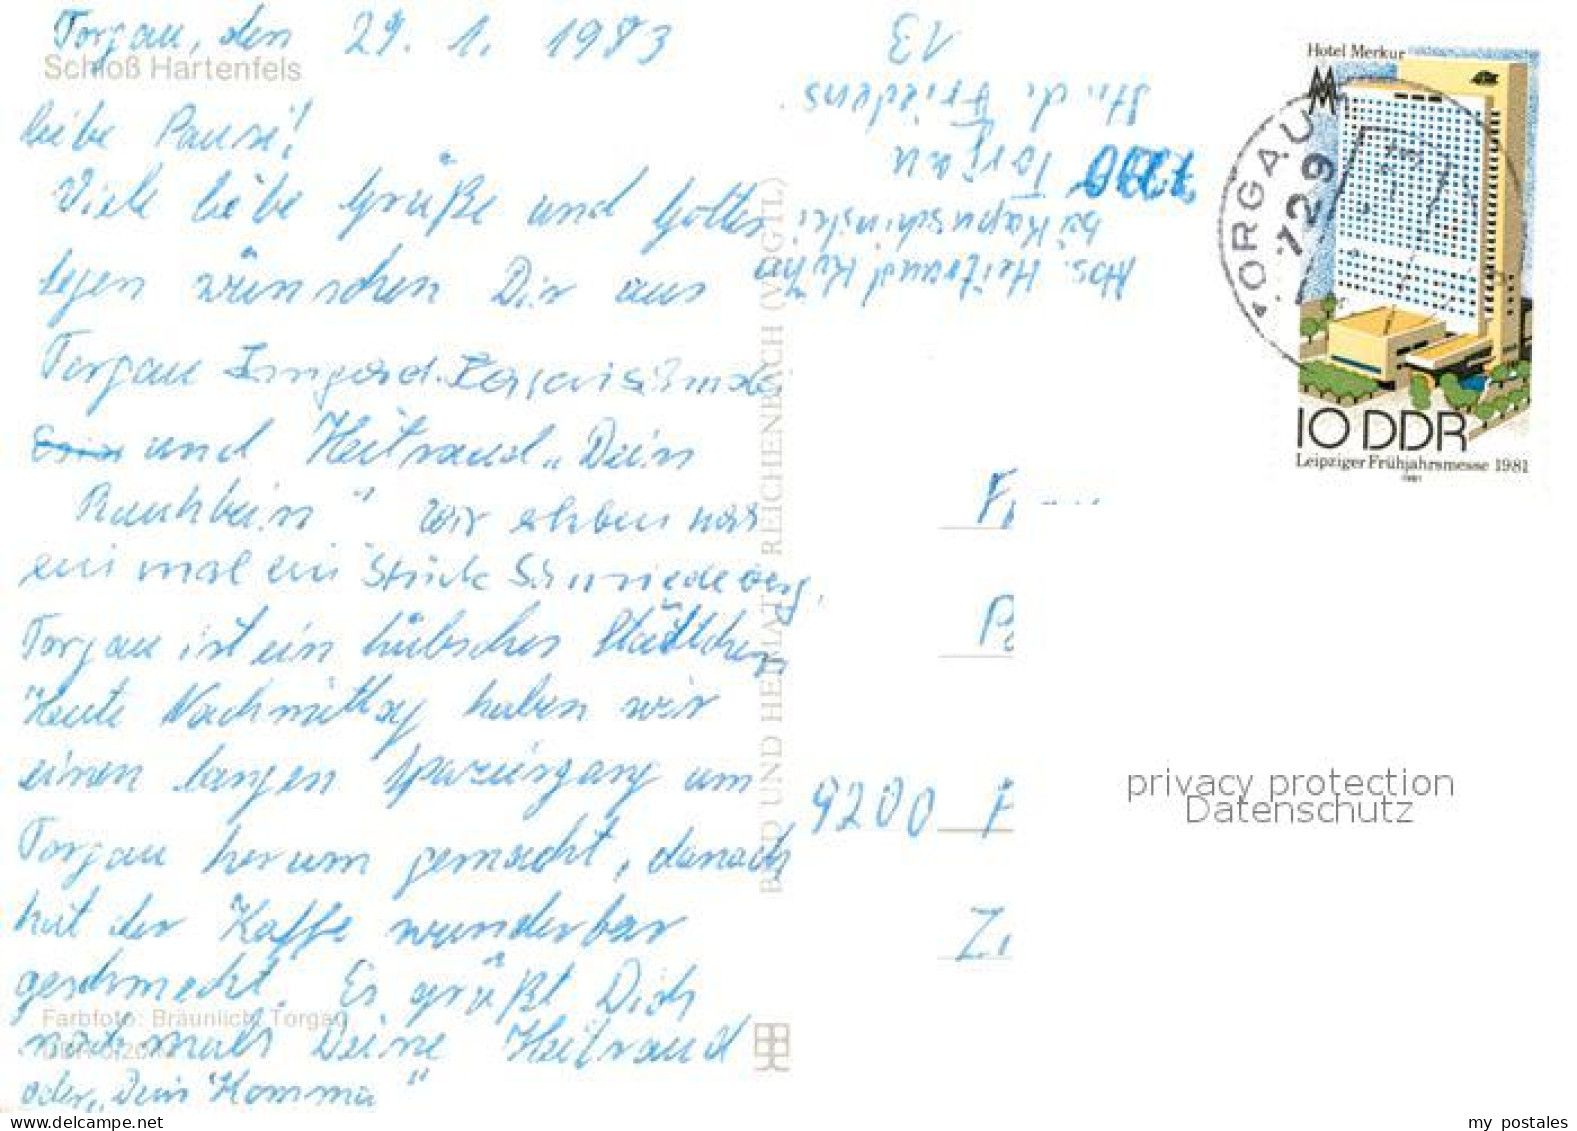 Torgau, den 29. 1. 1983
Schloß Hartenfels
liebe Pausi!
Viele liebe Grüße und Gottes
segen wünschen Dir aus
Torgau Irmgard
und Heitraud „Dein
Rauhbein" Wir erleben noch
ein mal ein Stück Schmiedeberg,
Torgau ist ein hübsches Städtchen
Heute Nachmittag haben wir
einen langen Spaziergang um
Torgau herum gemacht, danach
hat der Kaffe wunderbar
geschmeckt. Es grüßt Dich
nochmals Deine Heitraud
oder „Dein Komma"
Farbfoto: Bräunlich, Torgau
BILD UND HEIMAT REICHENBACH (VOGTL)
Abs. Heitraud Kühn
bei Kapuschinski
7290 Torgau
Str. d. Friedens
13
Hotel Merkur
MM
TORGAU
729
10 DDR
Leipziger Frühjahrsmesse 1981
1981
9200
privacy protection
Datenschutz
my postales